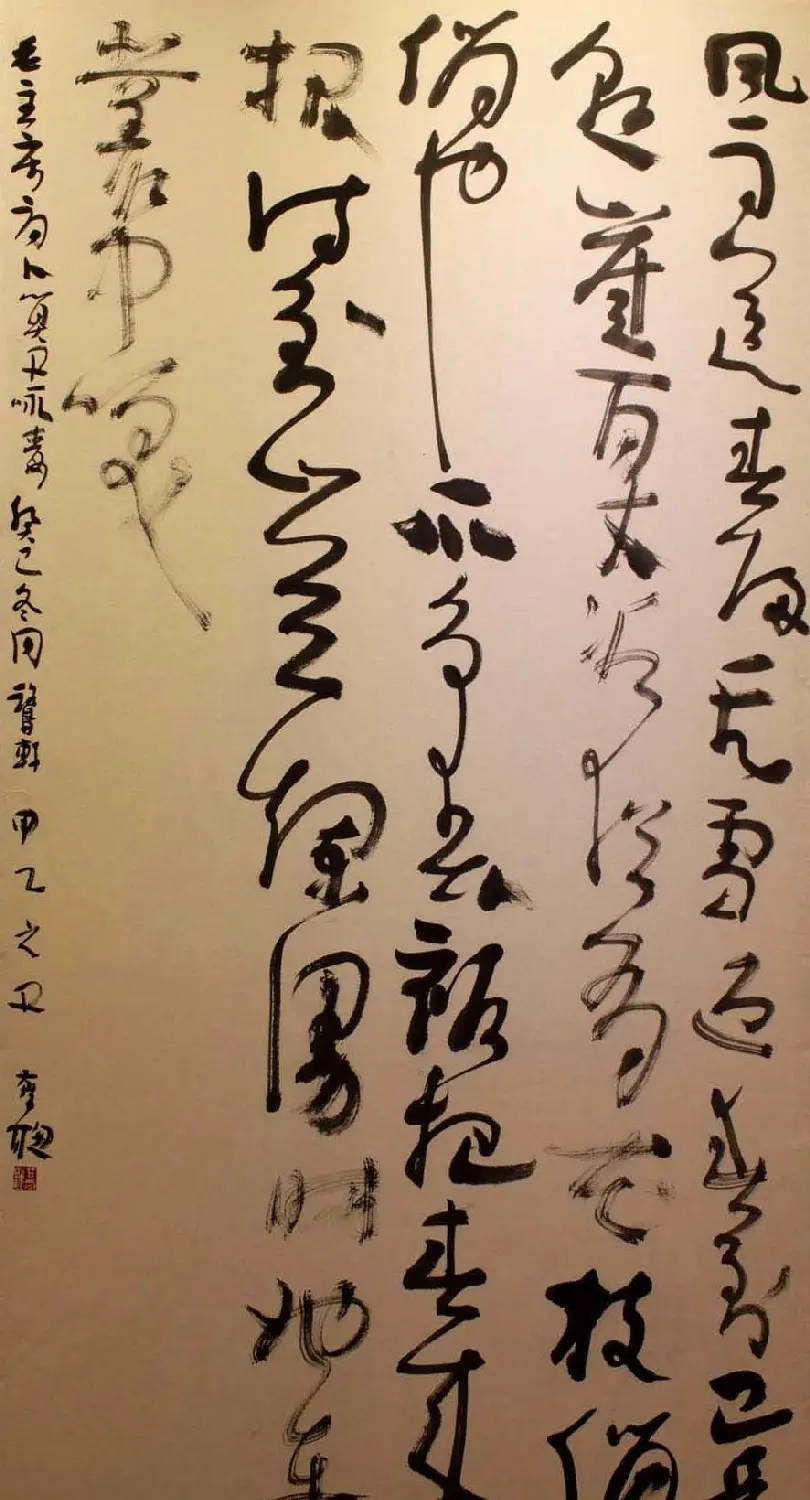 風雨送春歸飛雪迎春到已是
懸崖百丈冰猶有花枝俏
俏也不爭春祇把春来
報待到山花爛漫時她在
叢中笑
毛主席詞卜算子咏梅 癸巳冬 軒 甲乙之